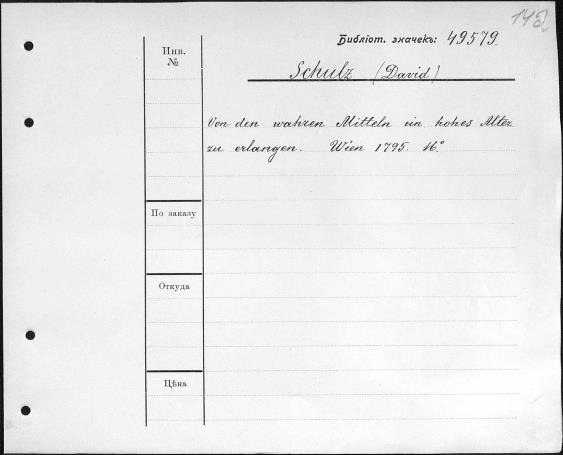 Библіот. значекъ: 49579.
Инв.
№
Schulz (David)
Von den wahren Mitteln ein hohes Alter
zu erlangen. Wien 1795. 16°
По заказу
Откуда
Цѣна